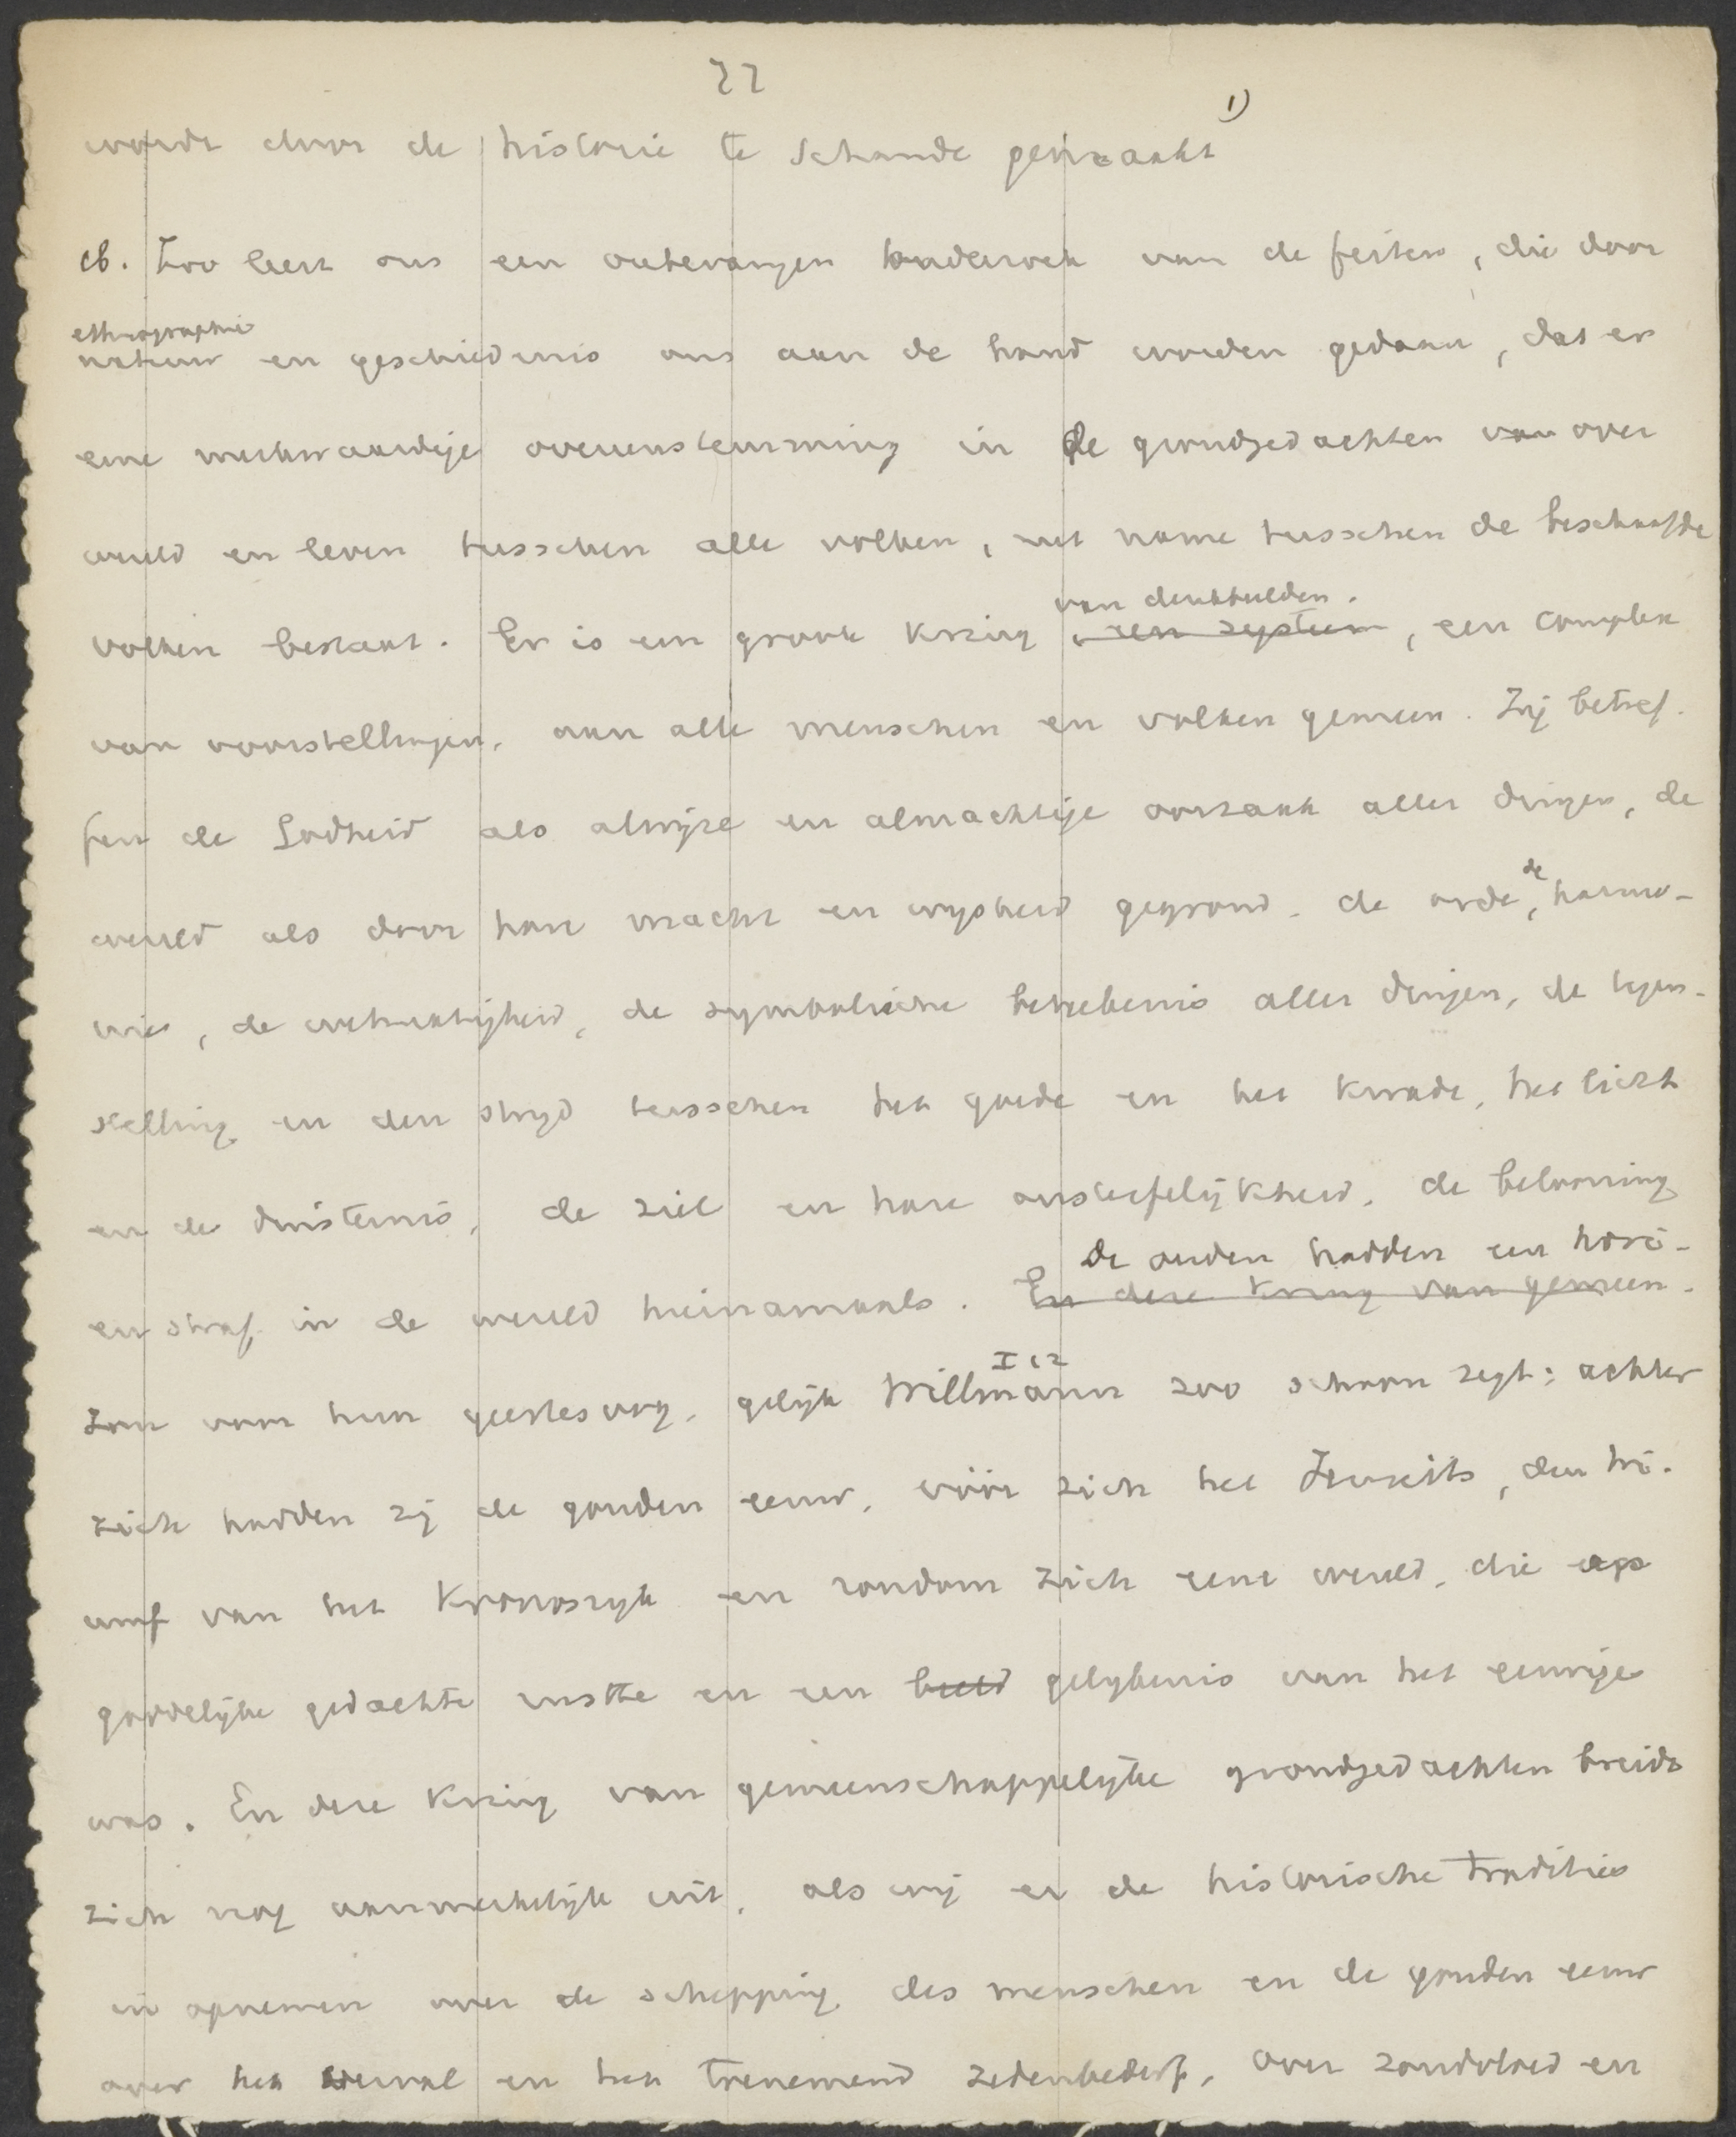 22
wordt door de historie te schande gemaakt 1)
cb. Zoo leert ons een onbevangen onderzoek van de feiten, die door
ethnographie
natuur en geschiedenis ons aan de hand worden gedaan, dat er
eene merkwaardige overeenstemming in de grondgedachten van over
wereld en leven tusschen alle volken, met name tusschen de beschaafde
van denkbeelden.
volken bestaat. Er is een groote kring, een systeem, een complex
van voorstellingen, aan alle menschen en volken gemeen. Zij betref-
fen de Godheid als alwijze en almachtige oorzaak aller dingen, de
wereld als door hare macht en wijsheid gegrond. de orde, de harmo-
nie, de wetmatigheid, de symbolische beteekenis aller dingen, de tegen-
stelling en den strijd tusschen het goede en het kwade, het licht
en de duisternis, de ziel en hare onsterfelijkheid, de belooning
de ouden hadden een hori-
en straf in de wereld hiernamaals. En deze kring van gemeen-
I 12
zon voor hun geestesoog, gelijk Willmann zoo schoon zegt: achter
zich hadden zij de gouden eeuw, vóór zich het Jenseits, den tri-
umf van het Kronosrijk en rondom zich eene wereld, die op
goddelijke gedachte rustte en een beeld gelijkenis van het eeuwige
was. En deze kring van gemeenschappelijke grondgedachten breidt
zich nog aanmerkelijk uit, als wij er de historische tradities
in opnemen over de schepping des menschen en de gouden eeuw
over het verval en het toenemend zedenbederf, over zondvloed en